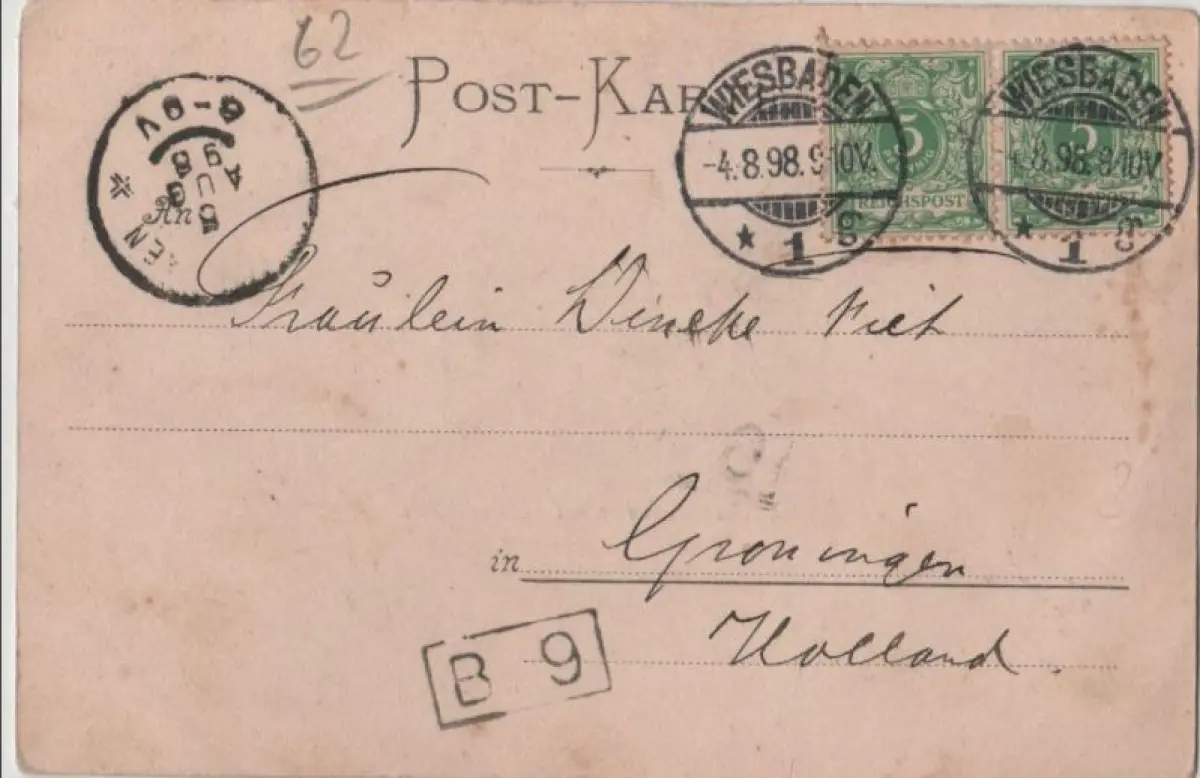 62
POST-KAR
WIESBADEN
-4.8.98.9-10V.
* 1 g
5
REICHSPOST
WIESBADEN
4.8.98.9-10V
* 1 g
5
8-9V
5 AUG
98
EN
An
Fräulein Wineke
in Groningen
Holland.
B 9